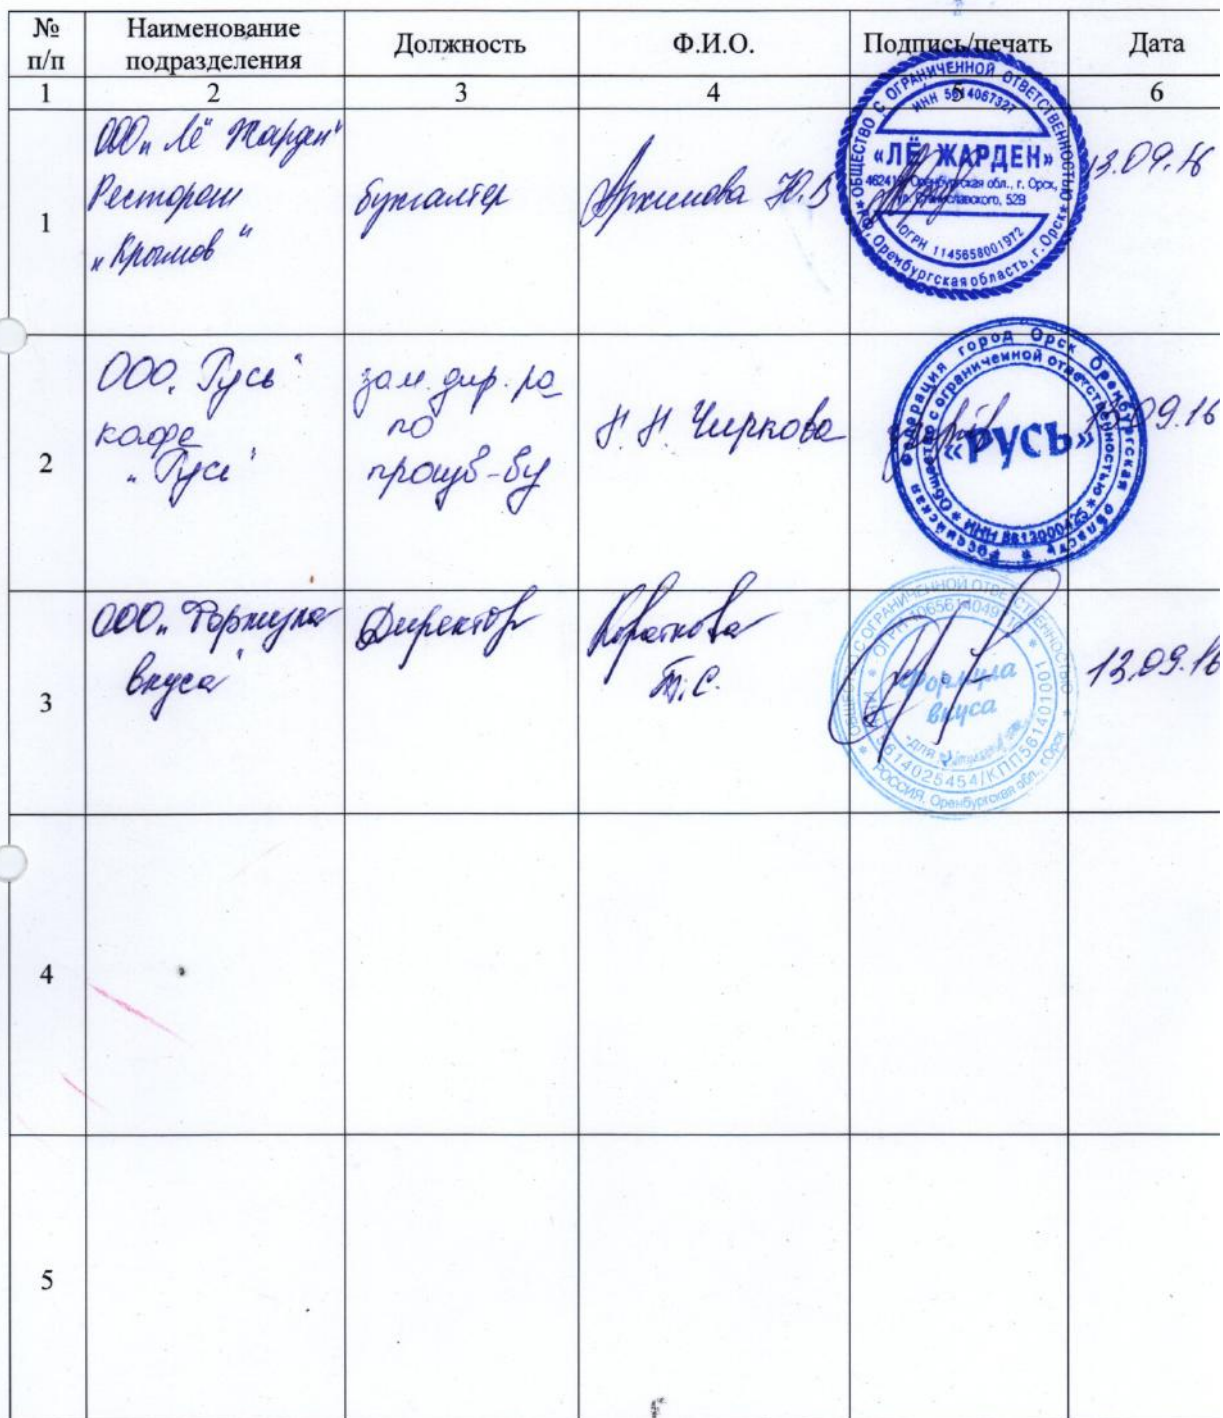 № п/п Наименование подразделения Должность Ф.И.О. Подпись/печать Дата
1 2 3 4 5 6
1
ООО „Лё Жарден"
Ресторан
„Крымов"
бухгалтер
Ю.В
ОБЩЕСТВО С ОГРАНИЧЕННОЙ ОТВЕТСТВЕННОСТЬЮ
ИНН 5614067327
«ЛЁ ЖАРДЕН»
Оренбургская обл., г. Орск,
52В
ОГРН 1145658001972
РФ, Оренбургская область, г. Орск
13.09.16
2
ООО „Русь"
кафе
„Русь"
зам. дир. ра
по
произв-ву
Н. Н. Чиркова
Российская Федерация город Орск Оренбургская область
Общество с ограниченной ответственностью
«РУСЬ»
ИНН
09.16
3
ООО „Формула
вкуса"
Директор
Короткова
Т.С.
ОБЩЕСТВО С ОГРАНИЧЕННОЙ ОТВЕТСТВЕННОСТЬЮ
ОГРН
Формула
вкуса
для
5614025454/КПП561401001
РОССИЯ, Оренбургская обл., г.Орск
13.09.16
4
5